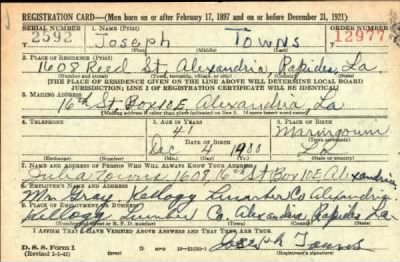 REGISTRATION CARD—(Men born on or after February 17, 1897 and on or before December 31, 1921)
SERIAL NUMBER 1. NAME (Print) ORDER NUMBER
2592 Joseph Towns 12977
(First) (Middle) (Last)
2. PLACE OF RESIDENCE (Print)
1608 Reed St. Alexandria, Rapides, La.
(Number and street) (Town, township, village, or city) (County) (State)
[THE PLACE OF RESIDENCE GIVEN ON THE LINE ABOVE WILL DETERMINE LOCAL BOARD
JURISDICTION; LINE 2 OF REGISTRATION CERTIFICATE WILL BE IDENTICAL]
3. MAILING ADDRESS
16th St. Box 10E Alexandria, La
[Mailing address if other than place indicated on line 2. If same insert word same]
4. TELEPHONE 5. AGE IN YEARS 6. PLACE OF BIRTH
41 Maringouin
DATE OF BIRTH
Dec 4 1900 La
7. NAME AND ADDRESS OF PERSON WHO WILL ALWAYS KNOW YOUR ADDRESS
Julia Towns 1608 16th St Box 10E Alexandria
8. EMPLOYER'S NAME AND ADDRESS
Mr. Gray Kellogg Lumber Co Alexandria
9. PLACE OF EMPLOYMENT OR BUSINESS
Kellogg Lumber Co. Alexandria Rapides La
I AFFIRM THAT I HAVE VERIFIED ABOVE ANSWERS AND THAT THEY ARE TRUE.
D. S. S. Form 1
(Revised 1-1-42) Joseph Towns